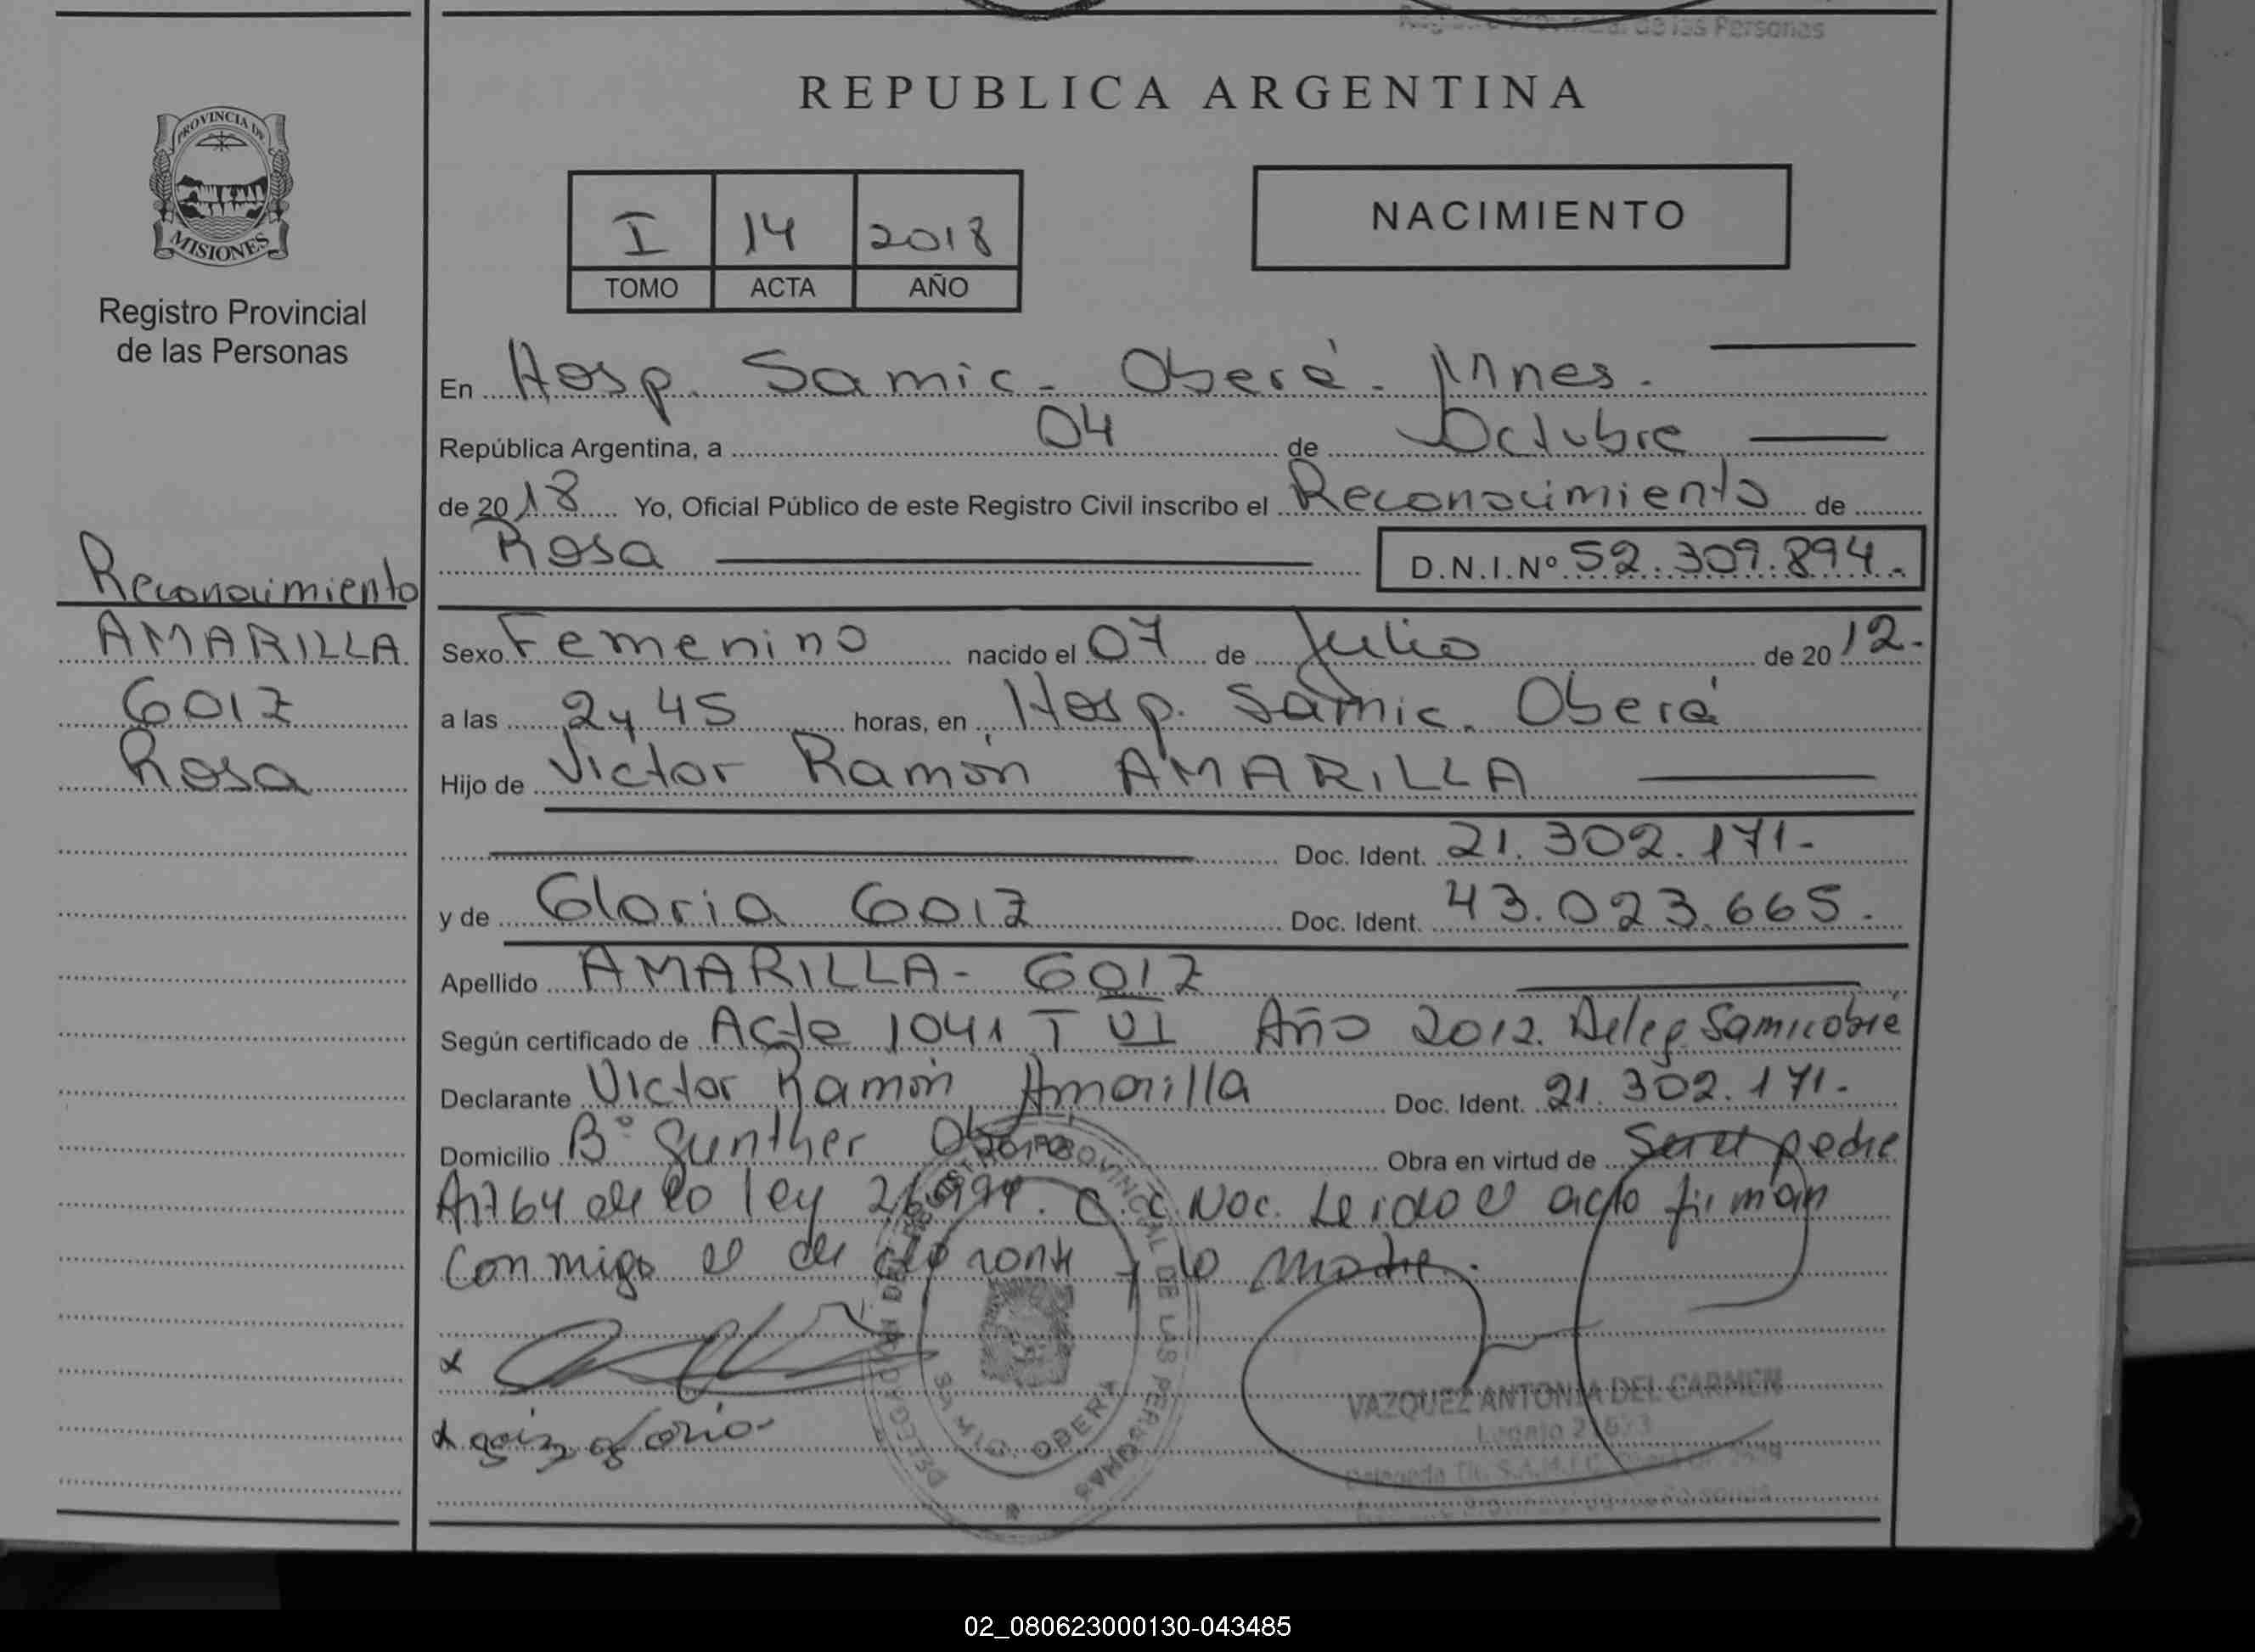 Registro Provincial de las Personas
REPUBLICA ARGENTINA
PROVINCIA DE
MISIONES
Registro Provincial
de las Personas
I 14 2018
TOMO ACTA AÑO
NACIMIENTO
En Hosp. Samic - Oberá - Mnes.
República Argentina, a 04 de Octubre
de 2018 Yo, Oficial Público de este Registro Civil inscribo el Reconocimiento de
Rosa D.N.I.Nº 52.309.894.-
Reconocimiento
AMARILLA
GOIZ
Rosa
Sexo Femenino nacido el 07 de Julio de 2012.-
a las 2y 45 horas, en Hosp. Samic. Oberá
Hijo de Victor Ramón AMARILLA
Doc. Ident. 21.302.171-
y de Gloria GOIZ Doc. Ident. 43.023.665.
Apellido AMARILLA - GOIZ
Según certificado de Acta 1041 T VI Año 2012. Deleg. Samic
Declarante Victor Ramón Amarilla Doc. Ident. 21.302.171-
Domicilio Bº Gunther Obra en virtud de Ser el padre
Art 64 de la ley 26994. C. C. Noc. Leido el acto firman
Conmigo el declarante y la madre.
DELEGACION REGISTRO PROVINCIAL DE LAS PERSONAS
SAMIC. OBERA
VAZQUEZ ANTONIA DEL CARMEN
goiz gloria
02_080623000130-043485